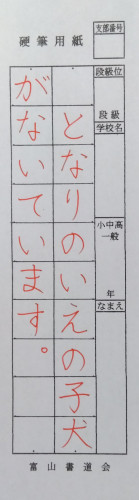 硬筆用紙
支部番号
段級位
段級
学校名
小中高
一般
年
なまえ
となりのいえの子犬
がないています。
富山書道会